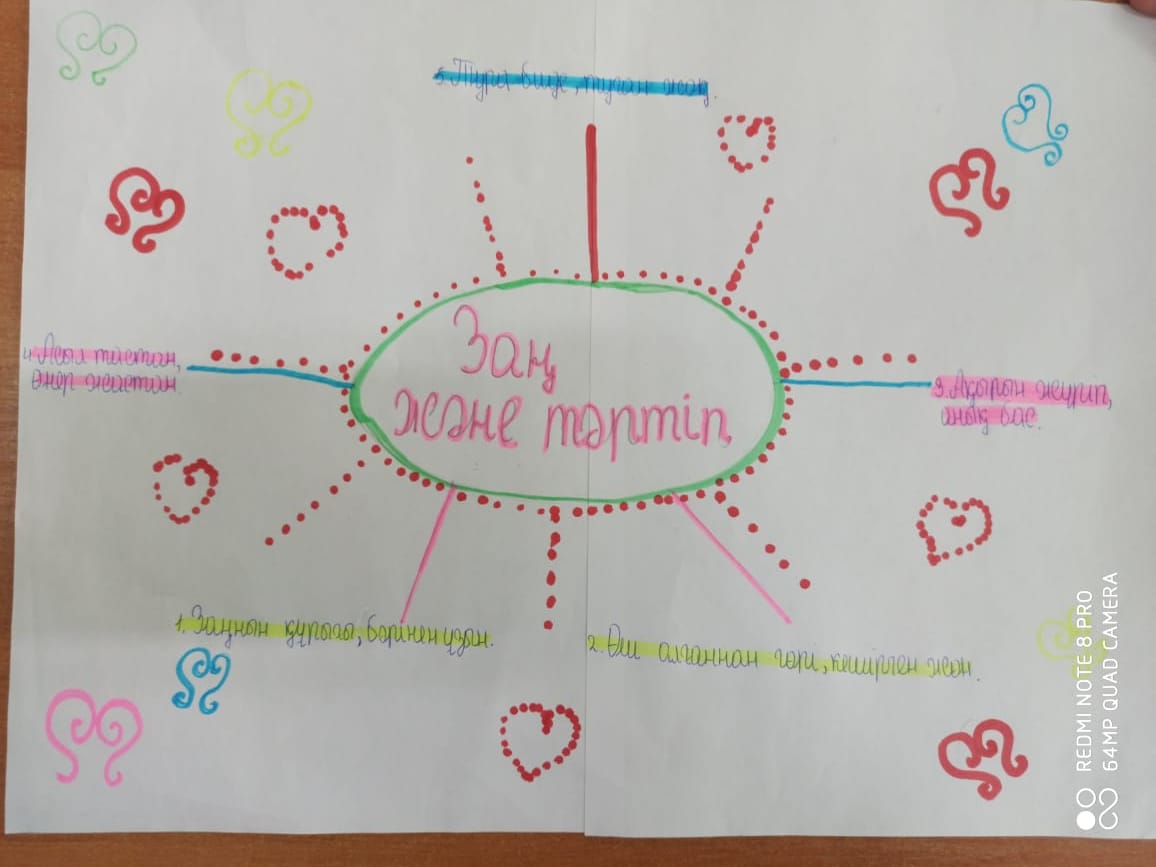 5. Тура биде, туған жоқ.
Заң
және тәртіп
4. Асыл тастан,
өнер жастан.
3. Ақырын жүріп,
анық бас.
1. Заңнын құрығы, бәрінен ұзын.
2. Өш алғаннан гөрі, кешірген жөн.
REDMI NOTE 8 PRO
64MP QUAD CAMERA